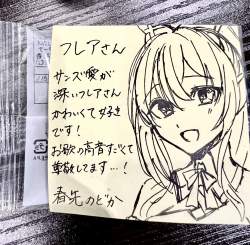 フレアさん
サンズ愛が
深いフレアさん
かわいくて好き
です！
お歌の高音すごくて
尊敬してます…！
春先のどか